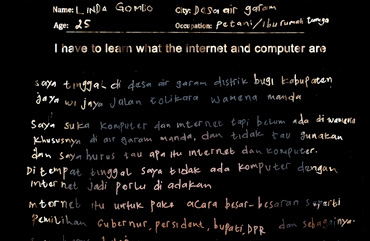 Name: LINDA GOMBO City: Desa air garam
Age: 25 Occupation: Petani/Ibu rumah tangga
I have to learn what the internet and computer are
saya tinggal di desa air garam distrik bugi kabupaten
jaya wi jaya jalan tolikara wamena manda
Saya suka komputer dan internet tapi belum ada di wamena
khususnya di air garam manda, dan tidak tau gunakan
dan saya harus tau apa itu internet dan komputer.
Di tempat tinggal saya tidak ada komputer dengan
internet jadi perlu di adakan
internet itu untuk pake acara besar-besaran seperti
pemilihan Gubernur, persident, bupati, DPR dan sebagainya.